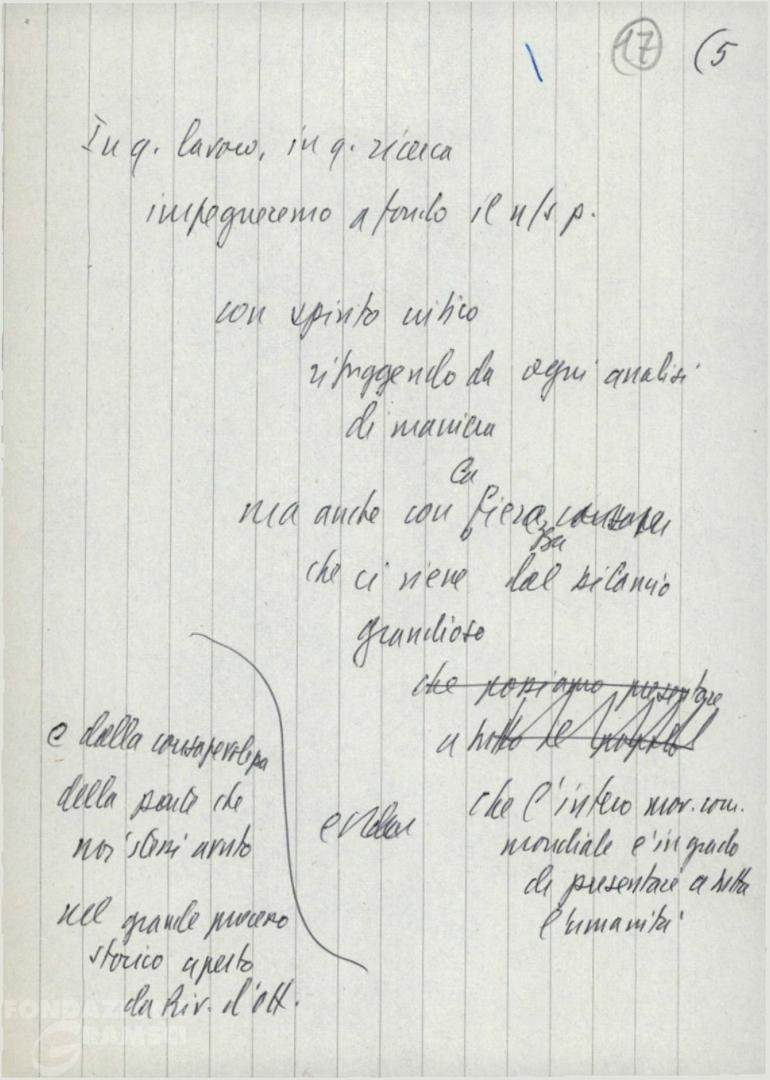 17 (5
In q. lavoro, in q. ricerca
impegneremo a fondo il n/s p.
con spirito critico
rifuggendo da ogni analisi
di maniera
ma anche con fierezza
che ci viene dal bilancio
grandioso
che possiamo presentare
a tutto il popolo
che l'intero mov. com.
mondiale è in grado
di presentare a tutta
l'umanità
e dalla consapevolezza
della parte che
noi stessi avuto
nel grande processo
storico aperto
da Riv. d'Ott.
FONDAZIONE
GRAMSCI